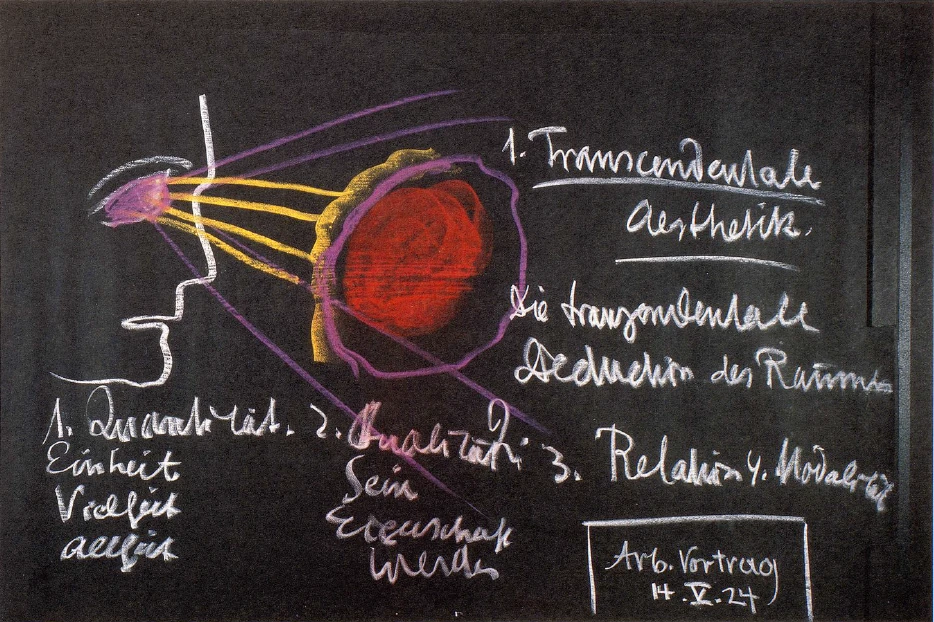 1. Transcendentale
Aesthetik.
Die tranzendentale
Deduction des Raumes
1. Quantität. 2. Qualität 3. Relation 4. Modalität
Einheit
Vielheit
Allheit
Sein
Eigenschaft
Werden
Arb. Vortrag
14.V.24